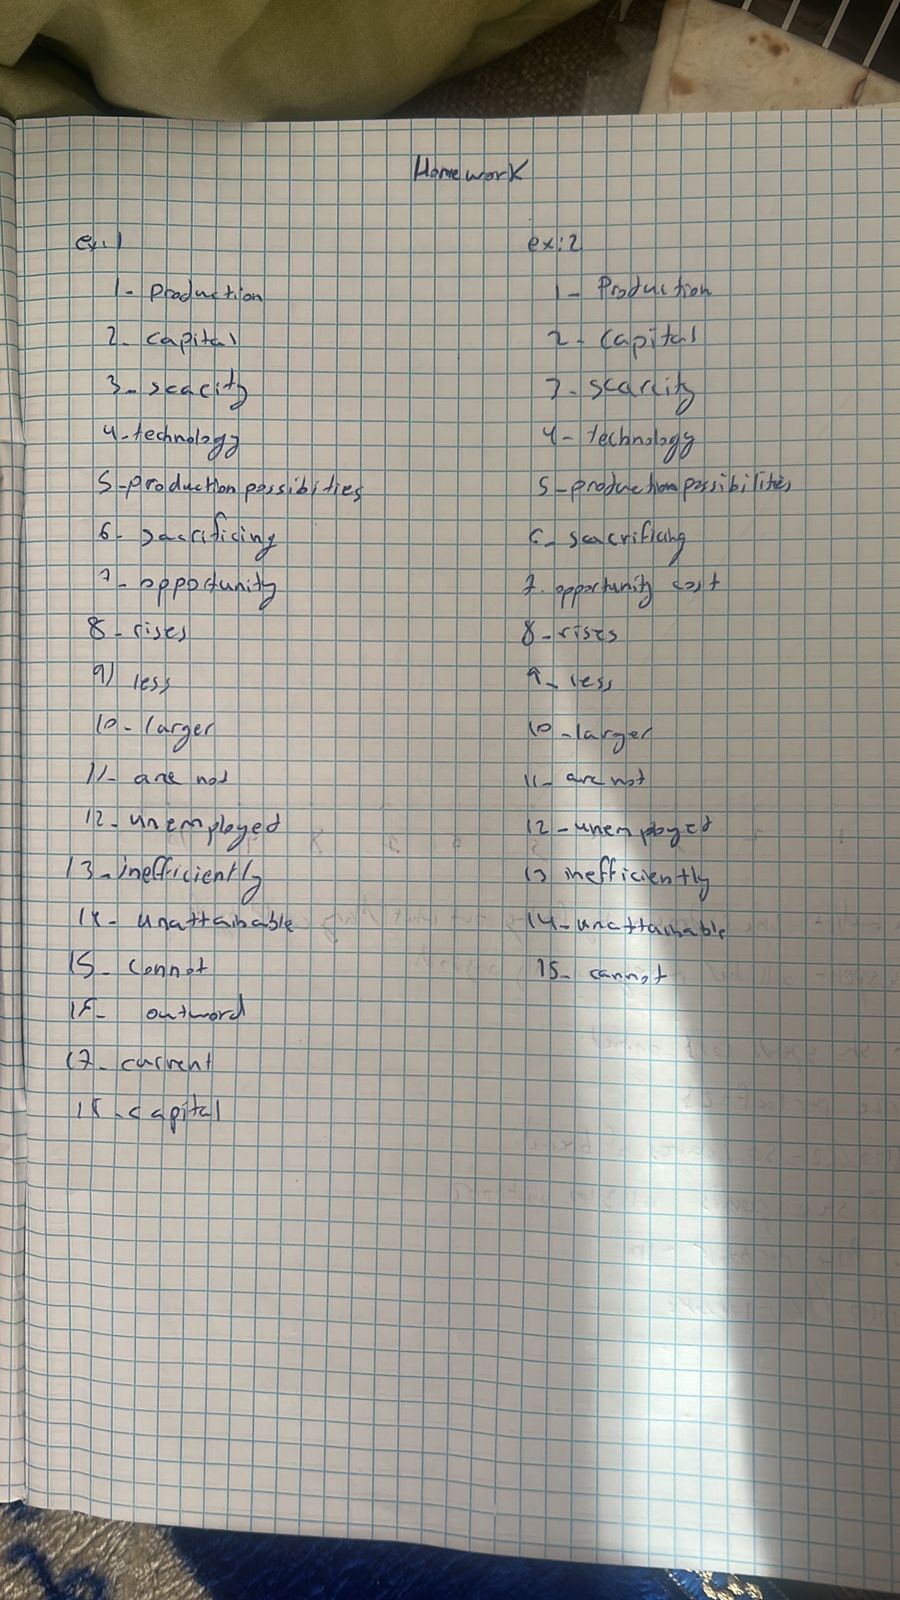 Homework
ex:1
1- production
2- capital
3- scacity
4- technology
5- production possibities
6- sacrificing
7- opportunity
8- rises
9) less
10- larger
11- are not
12- unemployed
13- inefficiently
14- unattainable
15- connot
16- outword
17- current
18- capital
ex:2
1- Production
2- capital
3- scarcity
4- technology
5- production possibilities
6- sacrificing
7. opportunity cost
8- rises
9- less
10- larger
11- are not
12- unemployed
13 inefficiently
14- unattainable
15- cannot